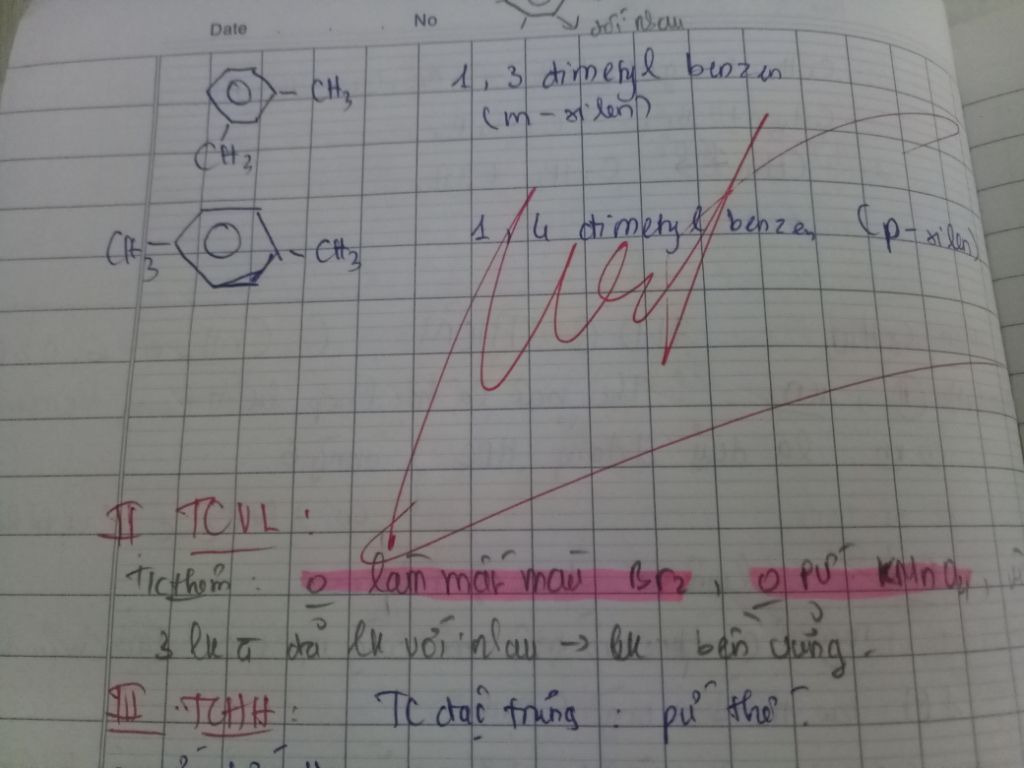 Date No
với nhau
CH3 1, 3 dimetyl benzen
(m-xilen)
CH3
CH3 CH3 1, 4 dimetyl benzen (p-xilen)
II TCVL :
TC thơm : 0 làm mất màu Br2, 0 pứ KMnO4,
3 lk π đã lk với nhau → lk bền vững.
III TCHH : TC đặc trưng : pứ thế.